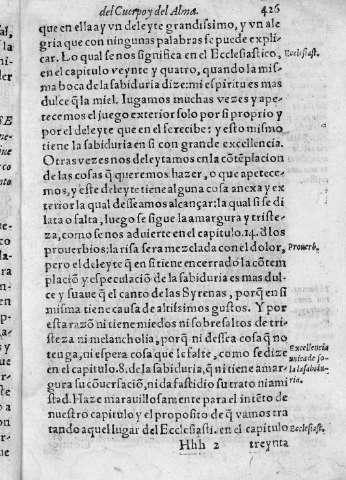 del Cuerpo y del Alma. 426
que en ella ay vn deleyte grandissimo, y vn ale
gria que con ningunas palabras se puede expli-
car. Lo qual se nos significa en el Ecclesiastico, Ecclesiast.
en el capitulo veynte y quatro, quando la mis-
ma boca de la sabiduria dize: mi espiritu es mas
dulce q̃ la miel. Iugamos muchas vezes y ape-
tecemos el juego exterior solo por si proprio y
por el deleyte que en el se recibe: y esto mismo
tiene la sabiduria en si con grande excellencia.
Otras vezes nos deleytamos en la cõtẽplacion
de las cosas q̃ queremos hazer, o que apetece-
mos, y este deleyte tiene alguna cosa anexa y ex
terior la qual desseamos alcançar: la qual si se di
lata o falta, luego se sigue la amargura y triste-
za, como se nos aduierte en el capitulo. 14. d̃ los
prouerbios: la risa sera mezclada con el dolor, Prouerb.
pero el deleyte q̃ en si tiene encerrado la cõtem
placiõ y especulaciõ de la sabiduria es mas dul-
ce y suaue q̃ el canto de las Syrenas, porq̃ en si
misma tiene causa de altissimos gustos. Y por
esta razõ ni tiene miedos ni sobresaltos de tri-
steza ni melancholia, porq̃ ni dessea cosa q̃ no
tenga, ni espera cosa que le falte, como se dize Excellencia
en el capitulo. 8. de la sabiduria, q̃ ni tiene amar- vnica de so-
gura su cõuersaciõ, ni da fastidio su trato ni ami la la sabidu-
stad. Haze marauillosamente para el intẽto de ria.
nuestro capitulo y el proposito de q̃ vamos tra
tando aquel lugar del Ecclesiasti. en el capitulo Ecclesiast.
Hhh 2 treynta